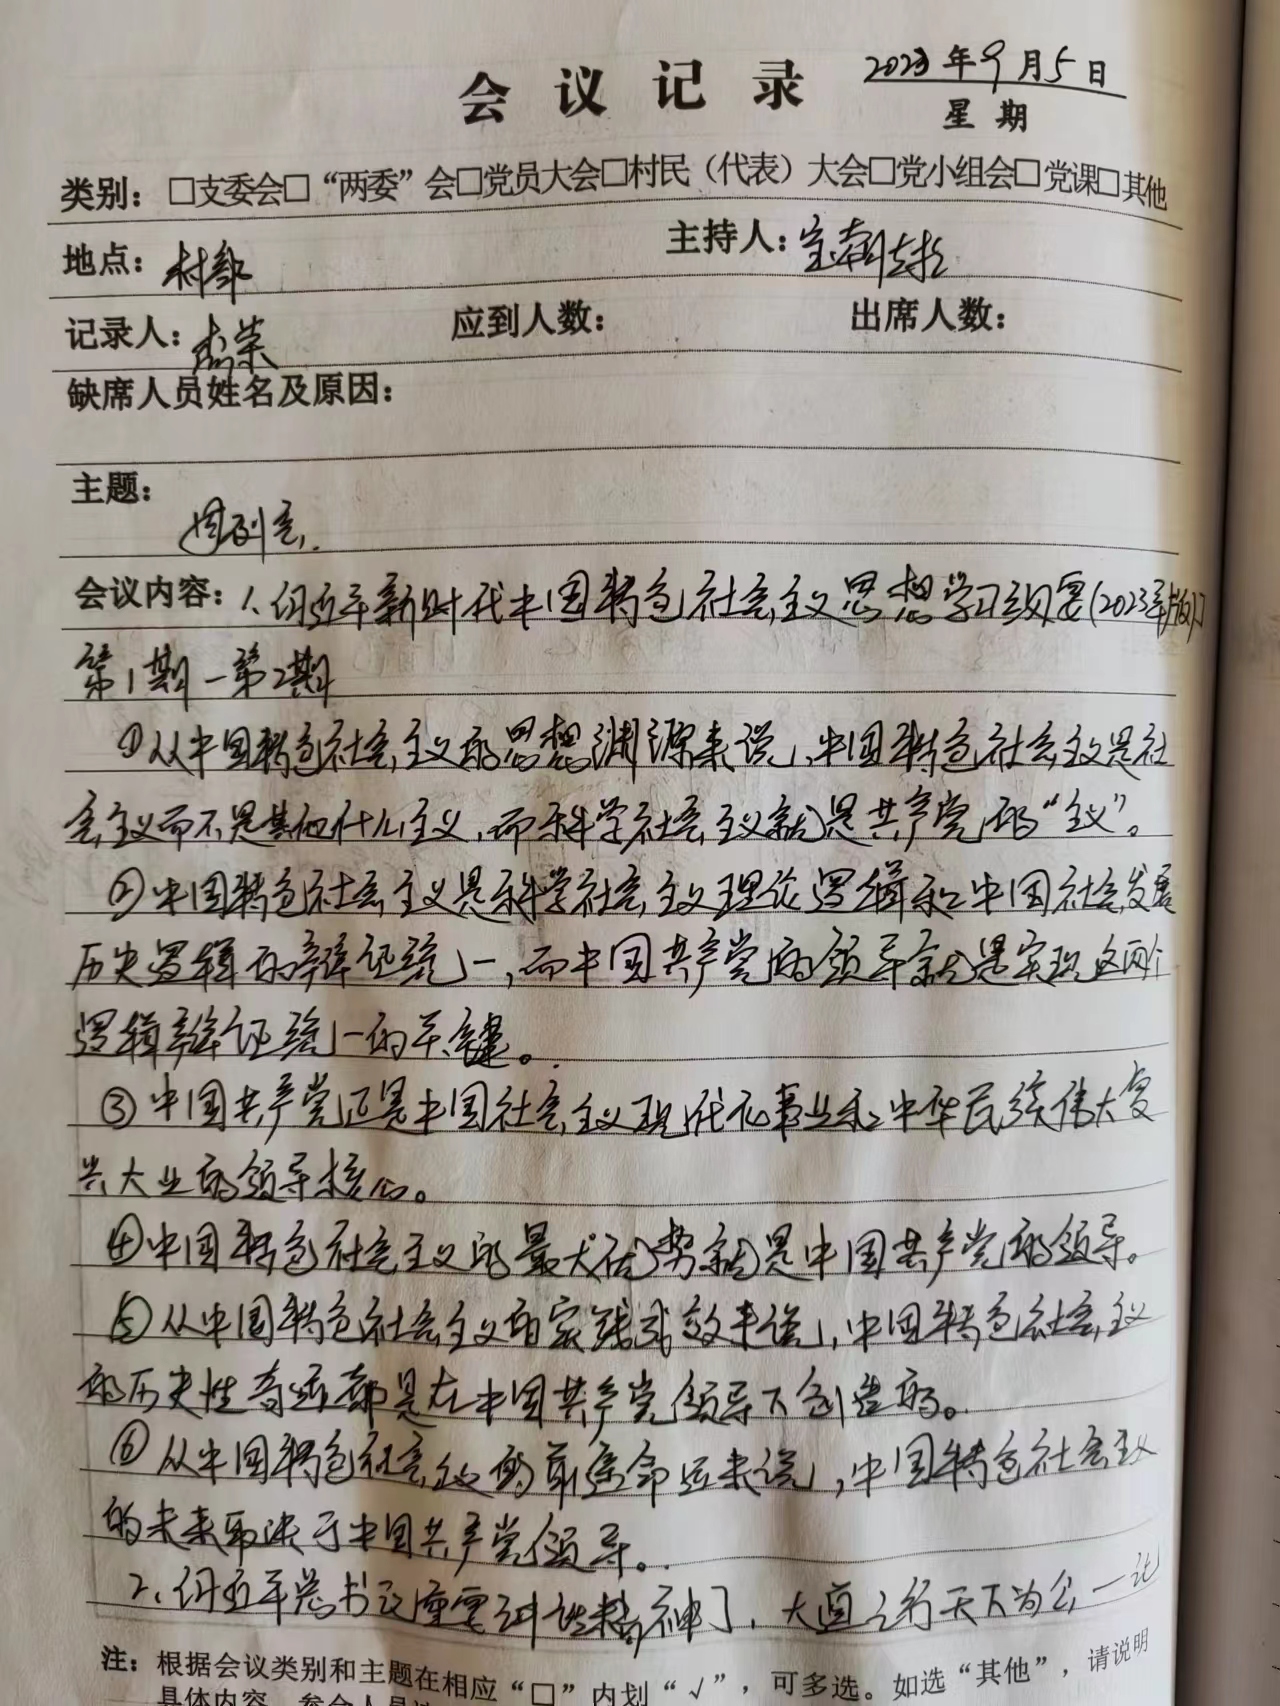 会议记录
2023年9月5日
星期
类别：□支委会□“两委”会□党员大会□村民（代表）大会□党小组会□党课□其他
地点：村部 主持人：宝朝
记录人： 应到人数： 出席人数：
缺席人员姓名及原因：
主题：
周例会.
会议内容：1、习近平新时代中国特色社会主义思想学习纲要(2023年版)
第1期－第2期
①从中国特色社会主义的思想渊源来说，中国特色社会主义是社
会主义而不是其他什么主义，而科学社会主义就是共产党的“主义”。
②中国特色社会主义是科学社会主义理论逻辑和中国社会发展
历史逻辑的辩证统一，而中国共产党的领导就是实现这两个
逻辑辩证统一的关键。
③中国共产党还是中国社会主义现代化事业和中华民族伟大复
兴大业的领导核心。
④中国特色社会主义的最大优势就是中国共产党的领导。
⑤从中国特色社会主义的实践成效来说，中国特色社会主义
的历史性奇迹都是在中国共产党领导下创造的。
⑥从中国特色社会主义的前途命运来说，中国特色社会主义
的未来取决于中国共产党领导。
2、习近平总书记重要讲话精神，大道之行天下为公一论
注：根据会议类别和主题在相应“□”内划“√”，可多选。如选“其他”，请说明
具体内容